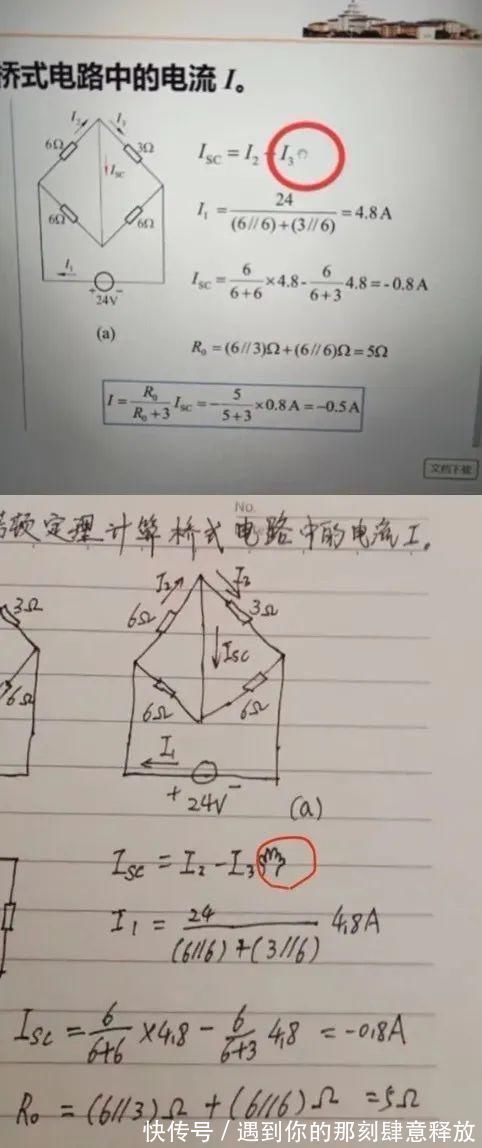 桥式电路中的电流 I。
I₂ I₃
6Ω 3Ω
I_SC
6Ω 6Ω
I₁
+ 24V −
(a)
I_SC = I₂ − I₃
I₁ = 24/((6//6)+(3//6)) = 4.8 A
I_SC = 6/(6+6) ×4.8 - 6/(6+3) 4.8 = - 0.8 A
R₀ = (6//3)Ω + (6//6)Ω = 5Ω
I = R₀/(R₀+3) I_SC = − 5/(5+3) ×0.8 A = −0.5 A
文档下载
No.
顿定理计算桥式电路中的电流 I。
I₂ I₂
3Ω 6Ω 3Ω
I_SC
6Ω 6Ω 6Ω
I₁
+ 24V −
(a)
I_SC = I₂ − I₃
I₁ = 24/((6//6)+(3//6)) 4.8A
I_SC = 6/(6+6) ×4.8 − 6/(6+3) 4.8 = −0.8A
R₀ = (6//3)Ω + (6//6)Ω = 5Ω
快传号 / 遇到你的那刻肆意释放